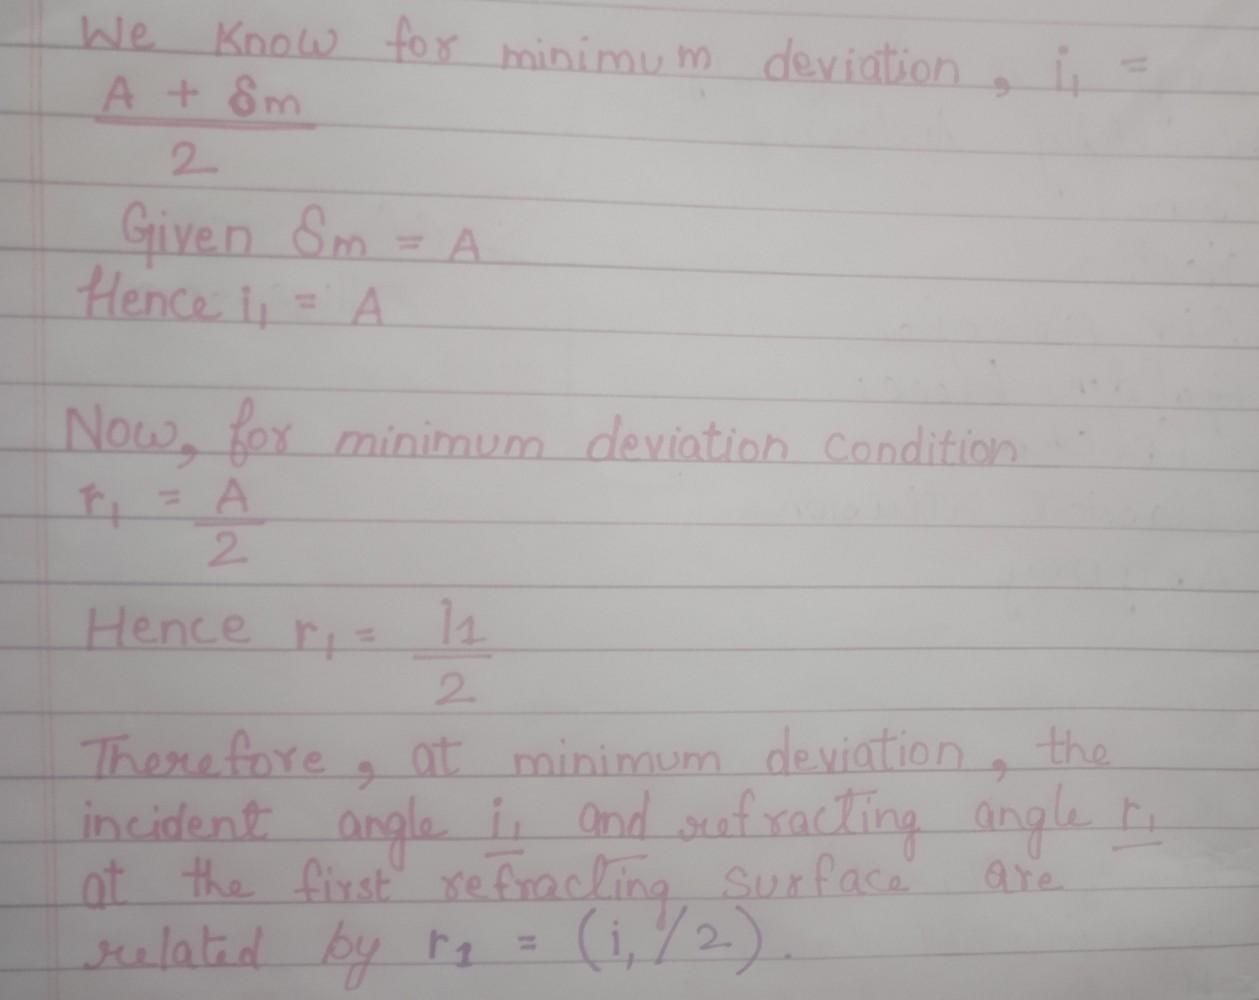 We Know for minimum deviation, i₁ =
A + δm
2
Given δm = A
Hence i₁ = A
Now, for minimum deviation condition
r₁ = A
2
Hence r₁ = i1
2
Therefore, at minimum deviation, the
incident angle i₁ and refracting angle r₁
at the first refracting surface are
related by r₁ = (i₁/2).